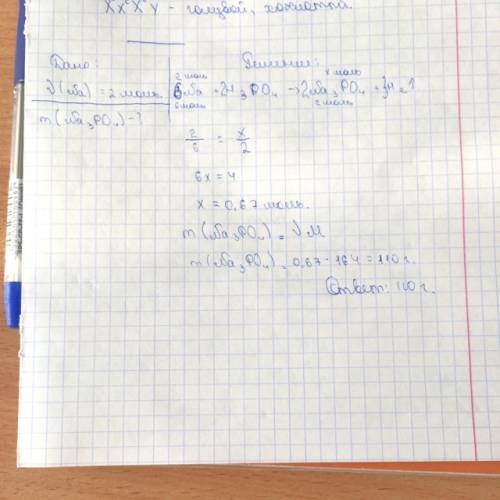 XxᴮXᵇY – голубой, хохлатый.
Дано:
ν(Na) = 2 моль
m(Na₃PO₄) - ?
Решение:
2 моль x моль
6Na + 2H₃PO₄ → 2Na₃PO₄ + 3H₂↑
6 моль 2 моль
2/6 = x/2
6x = 4
x = 0,67 моль.
m(Na₃PO₄) = ν M
m(Na₃PO₄) = 0,67 · 164 = 110 г.
Ответ: 110 г.